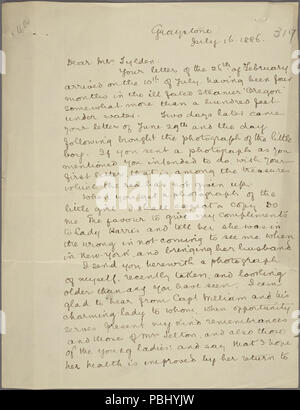 319
Graystone
July 16. 1886.
Dear Mr Tylden:
Your letter of the 26th of February
arrived on the 10th of July, having been four
months in the ill fated Steamer "Oregon"
somewhat more than a hundred feet
under water. Two days later came
your letter of June 29th and the day
following brought the photograph of the little
boy. If you sent a photograph as you
mentioned you intended to do with your
first letter it is among the treasures
which the sea has not given up.
photograph of the
little girl a copy Do
me the favour to give my compliments
to Lady Harris and tell her she was in
the wrong in not coming to see me when
in New York and bringing her husband
I send you herewith a photograph
of myself, recently taken, and looking
older than any you have seen. I am
glad to hear from Capt William and his
charming lady to whom when opportunity
serves present my kind remembrances
and those of and also those
of the young ladies: and say that I hope
her health is improved by her return to
alamy
alamy stock photo
PBHYJW